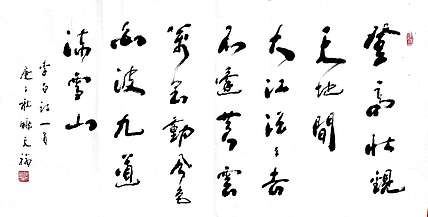 登高壯觀
天地間
大江茫々去
不還黃雲
萬里動風色
白波九道
流雪山
李白詩一首